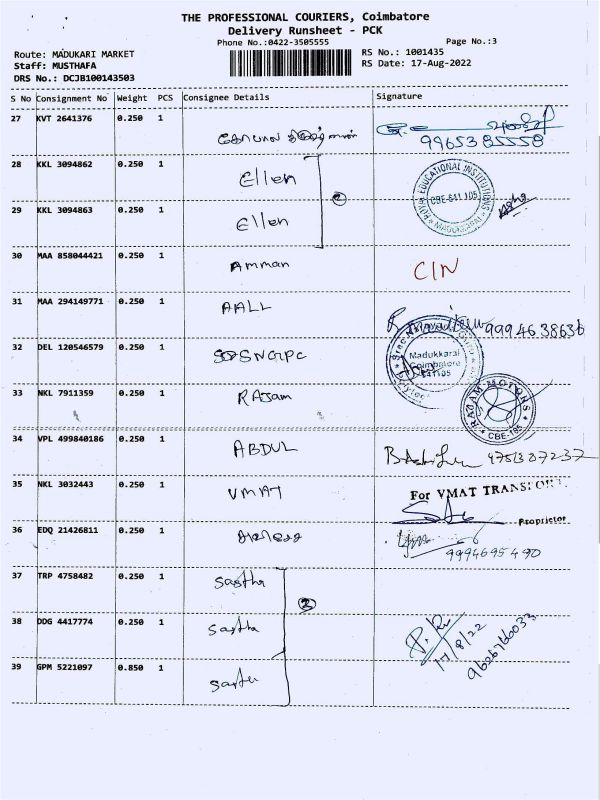 THE PROFESSIONAL COURIERS, Coimbatore
Delivery Runsheet - PCK
Phone No.:0422-3505555
Page No.:3
Route: MADUKARI MARKET
Staff: MUSTHAFA
DRS No.: DCJB100143503
RS No.: 1001435
RS Date: 17-Aug-2022
S No Consignment No Weight PCS Consignee Details Signature
27 KVT 2641376 0.250 1
9965385558
28 KKL 3094862 0.250 1 Ellen
29 KKL 3094863 0.250 1 Ellen
2
EDUCATIONAL INSTITUTIONS
CBE-641 105
MADUKKARAI
30 MAA 858044421 0.250 1 Amman CIN
31 MAA 294149771 0.250 1 AALL
9994638636
32 DEL 120546579 0.250 1
Madukkarai
Coimbatore
641105
33 NKL 7911359 0.250 1 RAJam
RAJAM MOTORS
CBE-105
34 VPL 499840186 0.250 1 ABDUL
35 NKL 3032443 0.250 1 VMAT
For VMAT TRANSPORT.
Proprietor
36 EDQ 21426811 0.250 1
9994695490
37 TRP 4758482 0.250 1 Sastha
38 DDG 4417774 0.250 1 Sastha
3
17/8/22
39 GPM 5221097 0.850 1